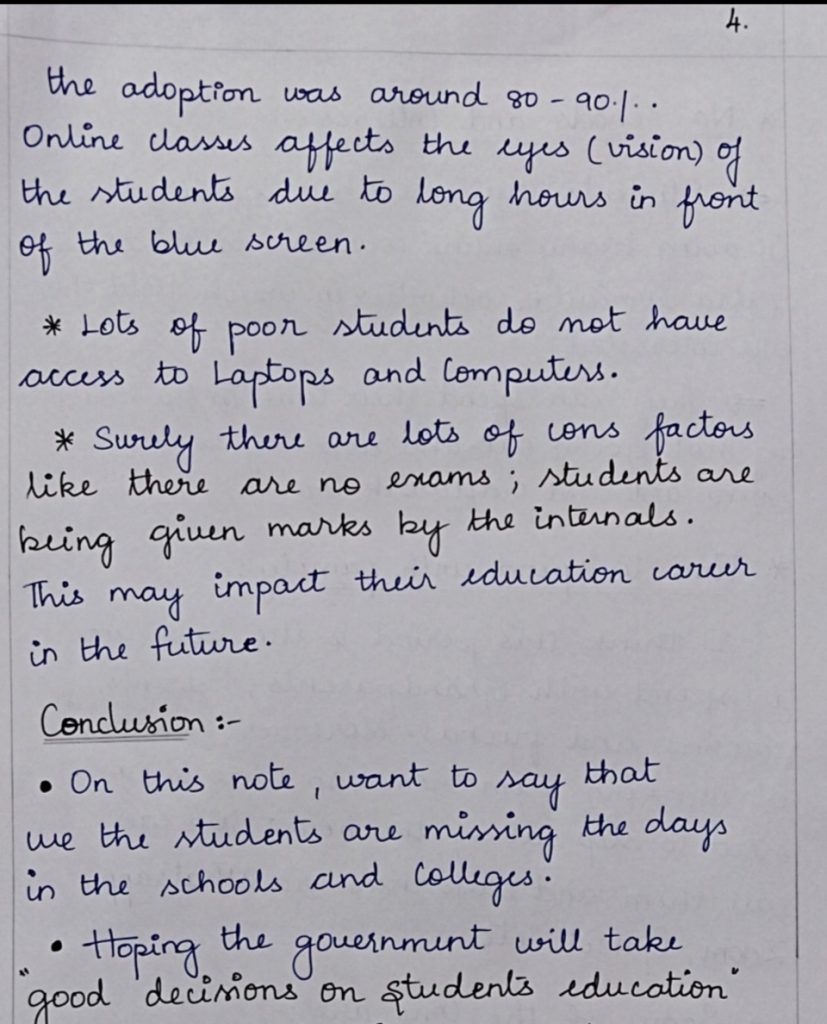 4.
the adoption was around 80 - 90%.
Online classes affects the eyes (vision) of
the students due to long hours in front
of the blue screen.
* Lots of poor students do not have
access to Laptops and Computers.
* Surely there are lots of cons factors
like there are no exams ; students are
being given marks by the internals.
This may impact their education career
in the future.
Conclusion :-
• On this note, want to say that
we the students are missing the days
in the schools and Colleges.
• Hoping the government will take
"good decisions on students education"